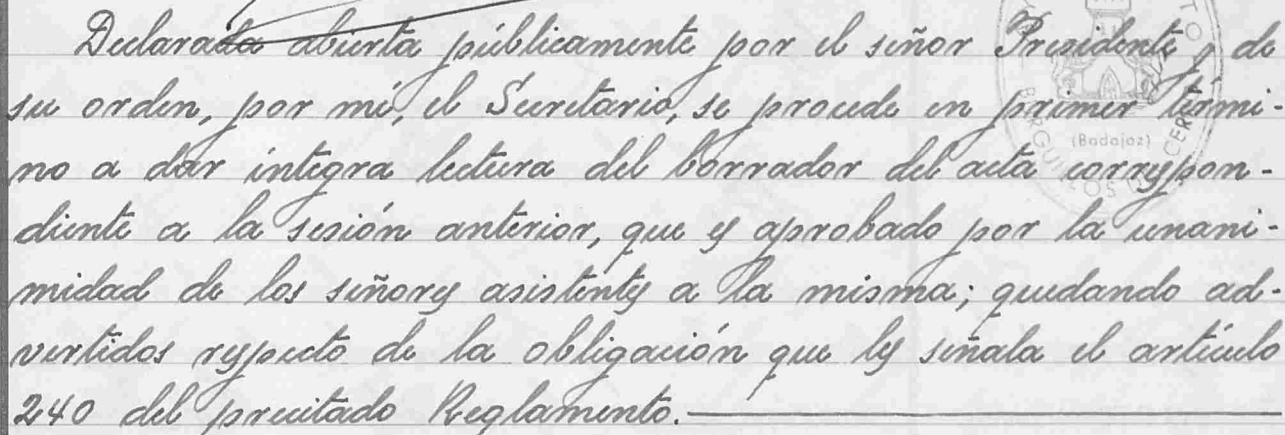 Declarada abierta públicamente por el señor Presidente y de
su orden, por mí, el Secretario, se procede en primer térmi-
no a dar íntegra lectura del borrador del acta correspon-
diente a la sesión anterior, que es aprobado por la unani-
midad de los señores asistentes a la misma; quedando ad-
vertidos respecto de la obligación que les señala el artículo
240 del precitado Reglamento.
(Badajoz)